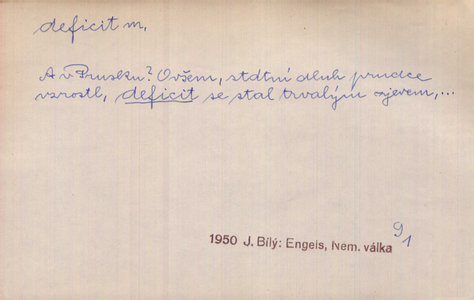 deficit m.
A v Prusku? Ovšem, státní dluh prudce
vzrostl, deficit se stal trvalým zjevem,...
1950 J. Bílý: Engels, Nem. válka
91